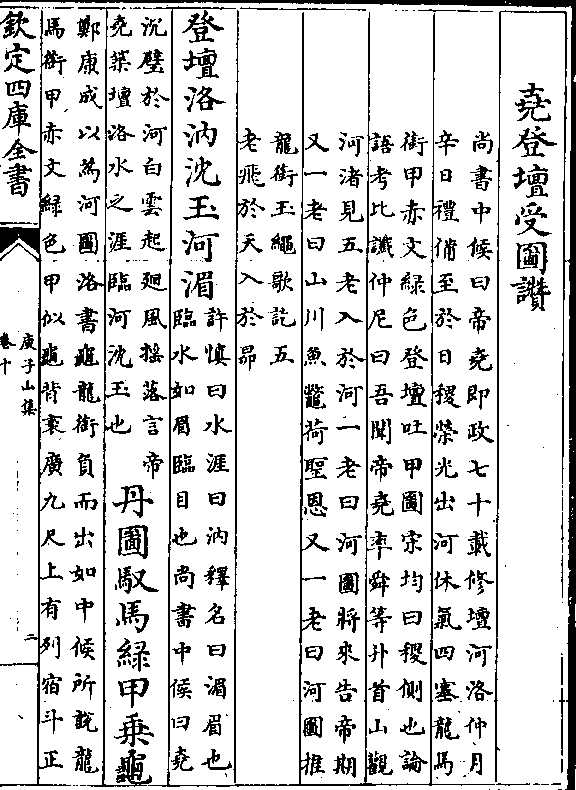 堯登壇受圖讚
尚書中候曰帝堯即政七十載修壇河洛仲月
辛日禮備至於日稷榮光出河休氣四塞龍馬
銜甲赤文綠色登壇吐甲圖宋均曰稷側也論
語考比讖仲尼曰吾聞帝堯率舜等升首山觀
河渚見五老入於河一老曰河圖將來告帝期
又一老曰山川魚鼈荷聖恩又一老曰河圖推
龍銜玉繩歌訖五
老飛於天入於昴
登壇洛汭沈玉河湄
許慎曰水涯曰汭釋名曰湄眉也
臨水如眉臨目也尚書中候曰堯
沉璧於河白雲起廻風搖落言帝
堯築壇洛水之涯臨河沈玉也
丹圖馭馬綠甲乗龜
鄭康成以為河圖洛書龜龍銜負而出如中候所說龍
馬銜甲赤文綠色甲似龜背袤廣九尺上有列宿斗正
欽定四庫全書
庾子山集
卷十
二